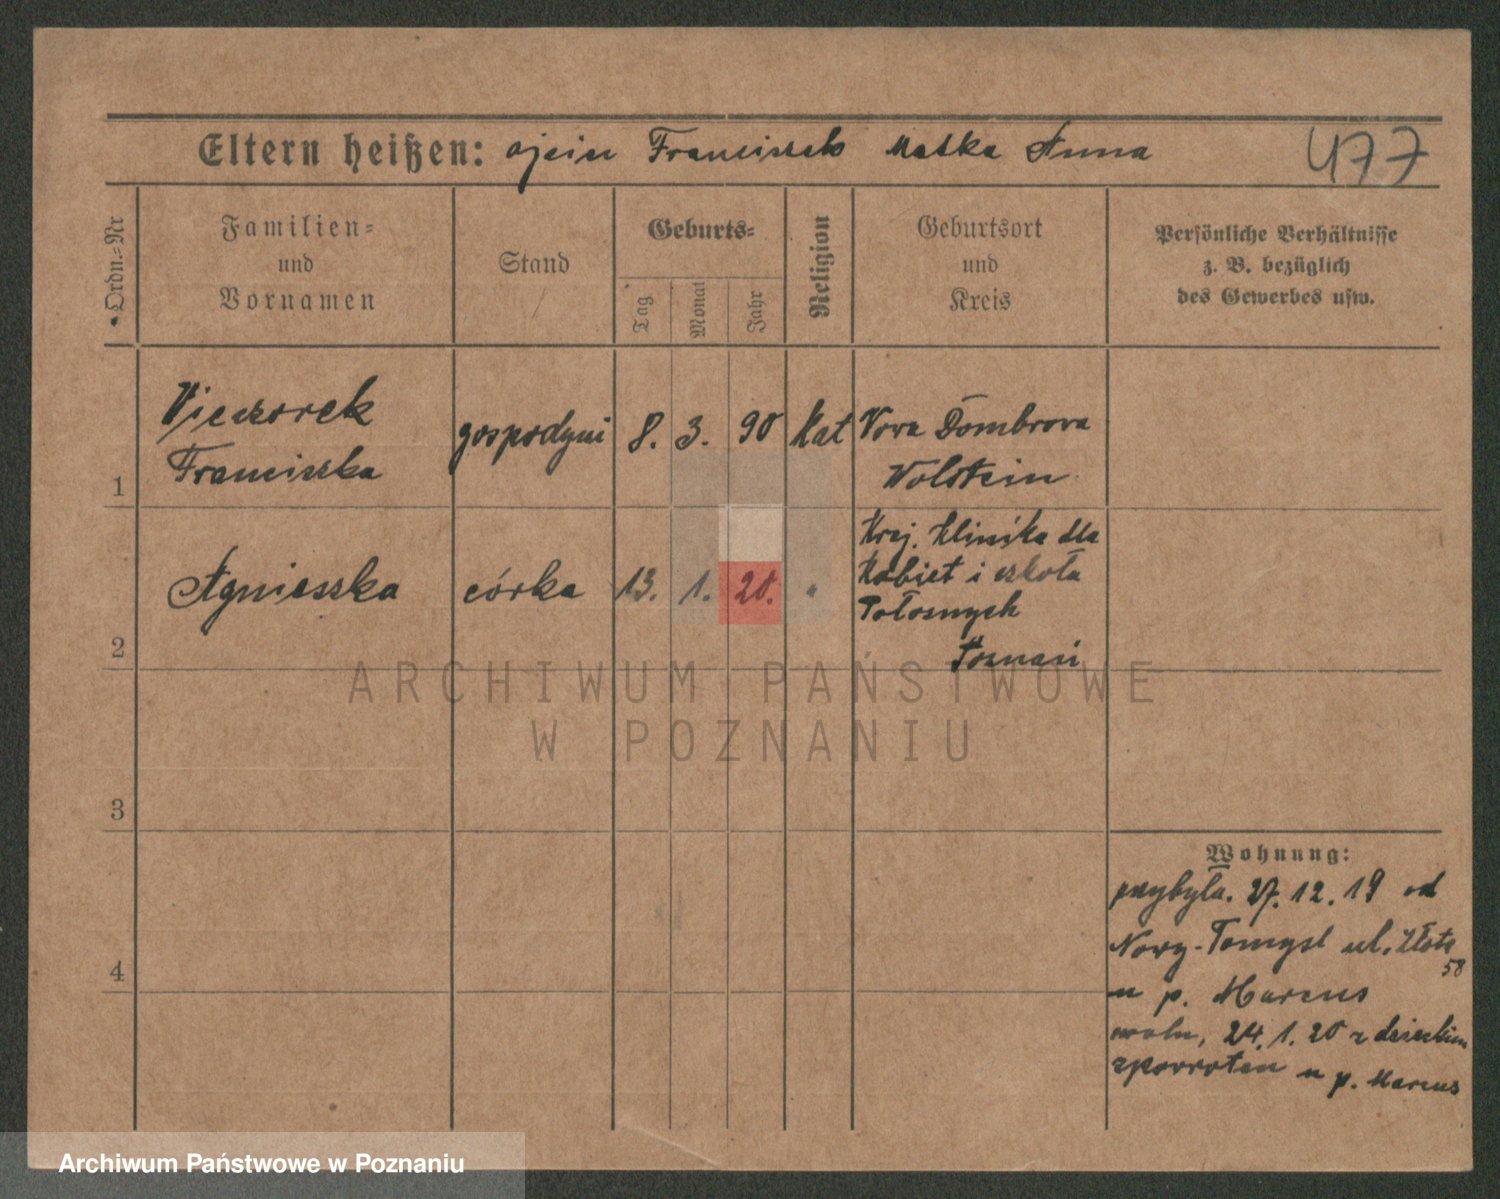 Eltern heißen: ojciec Franciszek Matka Anna 477
Ordn.-Nr
Familien-
und
Vornamen
Stand
Geburts-
Tag
Monat
Jahr
Religion
Geburtsort
und
Kreis
Persönliche Verhältnisse
z. B. bezüglich
des Gewerbes usw.
1
Vieczorek
Franciszka
gospodyni
8. 3. 90
Kat
Nova Dombrova
Wolstein
2
Agnieszka
córka
13. 1. 20.
"
Kraj. Klinika dla
Kobiet i szkoła
Położnych
Poznań
3
4
Wohnung:
przybyła. 27. 12. 19 od
Nowy-Tomysl ul. Złota
58
u p. Marcus
24. 1. 20 z dzieckiem
zpowrotem u p. Marcus
ARCHIWUM PAŃSTWOWE
W POZNANIU
Archiwum Państwowe w Poznaniu